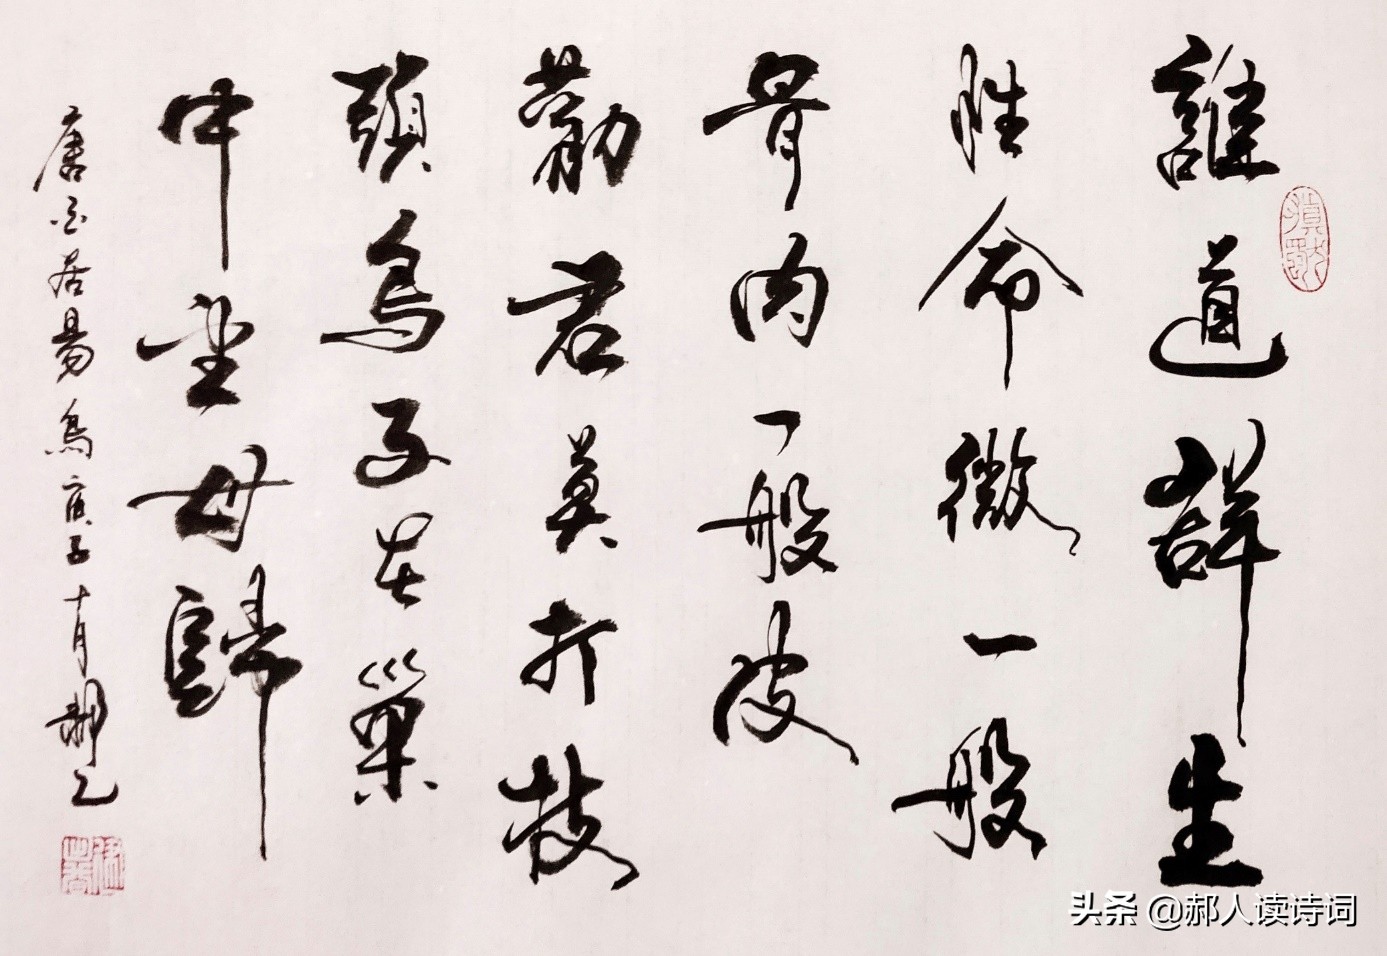 誰道群生
性命微一般
骨肉一般皮
勸君莫打枝
頭鳥子在巢
中望母歸
唐白居易鳥庚子
头条 @郝人读诗词